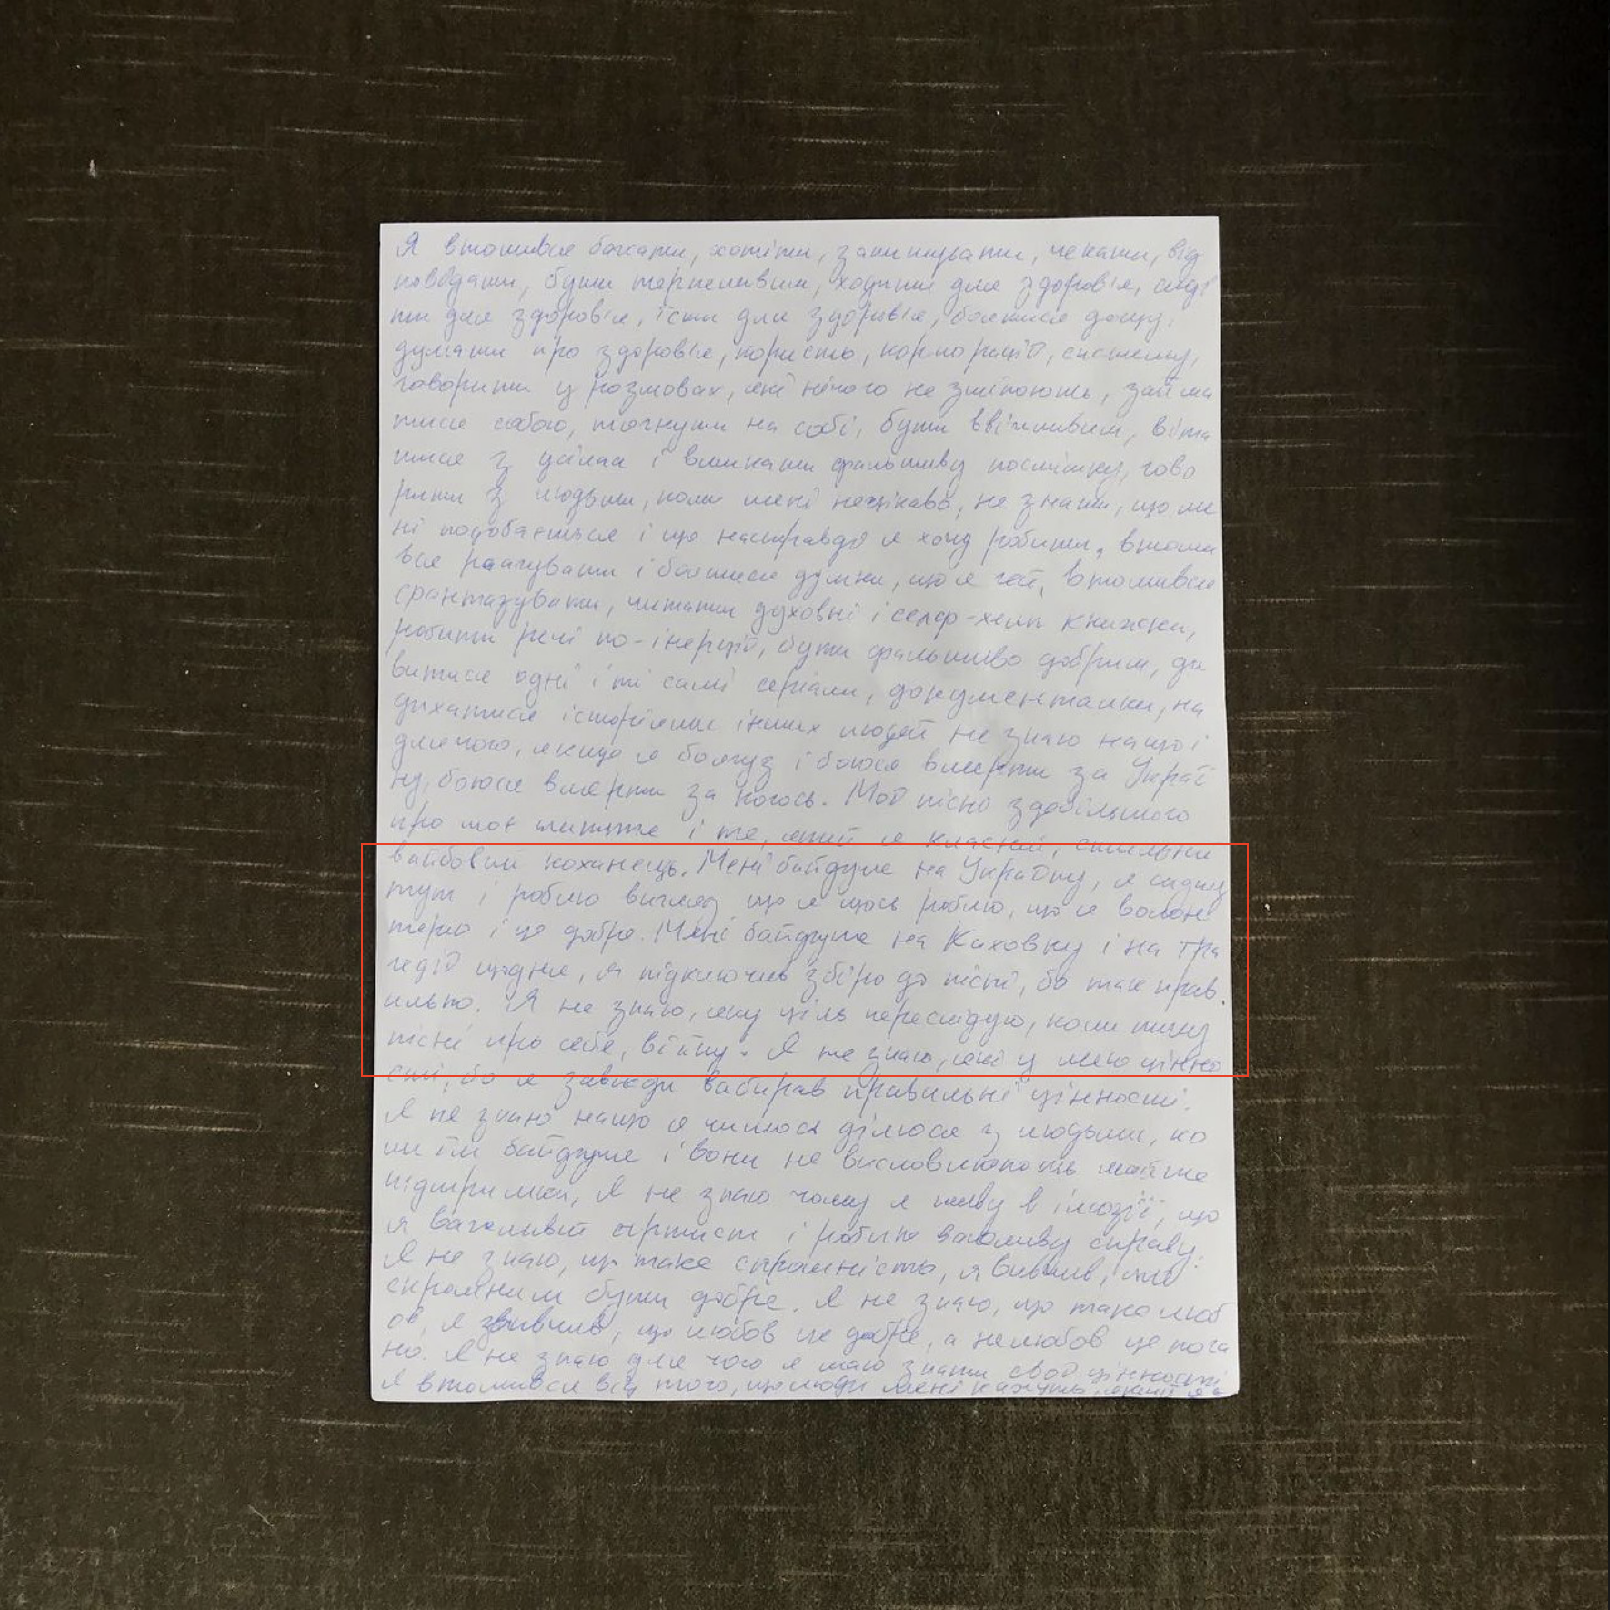 Я втомився бажати, хотіти, залишувати, чекати, від
повідати, бути терпеливим, ходити для здоров'я, сиді
ти для здоров'я, їсти для здоров'я, боятися дощу,
думати про здоров'я, користь, корпорації, систему,
говорити у розмовах, які нічого не змінюють, займа
тися собою, тягнути на собі, бути ввічливим, віта
тися з усіма і вмикати фальшиву посмішку, гово
рити з людьми, коли мені нецікаво, не знати, що ме
ні подобається і що насправді я хочу робити, втоми
вся реагувати і боятися думки, що я гей, втомився
фантазувати, читати духовні і селф-хелп книжки,
робити речі по-інерції, бути фальшиво добрим, ди
витися одні і ті самі серіали, документалки, на
дихатися історіями інших людей не знаю нащо і
для чого, якщо я боягуз і боюся вмерти за Украї
ну, боюся вмерти за когось. Мої пісні здебільшого
про моє життя і те, який я класний,
вайбовий коханець. Мені байдуже на Україну, я сиджу
тут і роблю вигляд що я щось роблю, що я волон
терю і це добре. Мені байдуже на Каховку і на тра
гедії щодня, я підключив збір до пісні, бо так прав
ильно. Я не знаю, яку ціль переслідую, коли пишу
пісні про себе, війну. Я не знаю, які у мене цінно
сті, бо я завжди вибирав правильні цінності.
Я не знаю нащо я чимось ділюся з людьми, ко
ли їм байдуже і вони не висловлюють майже
підтримки, Я не знаю чому я живу в ілюзії, що
я важливий артист і роблю важливу справу.
Я не знаю, що таке справжність, я вивчив, що
скромним бути добре. Я не знаю, що таке люб
ов, я вивчив, що любов це добре, а нелюбов це пога
но. Я не знаю для чого я маю знати свої цінності
Я втомився від того, що люди мені кажуть, який я